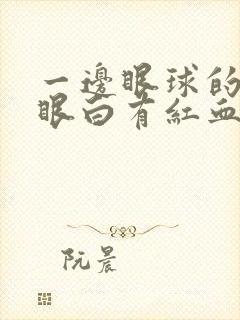 一邊眼球的
眼白有紅血
阮晨